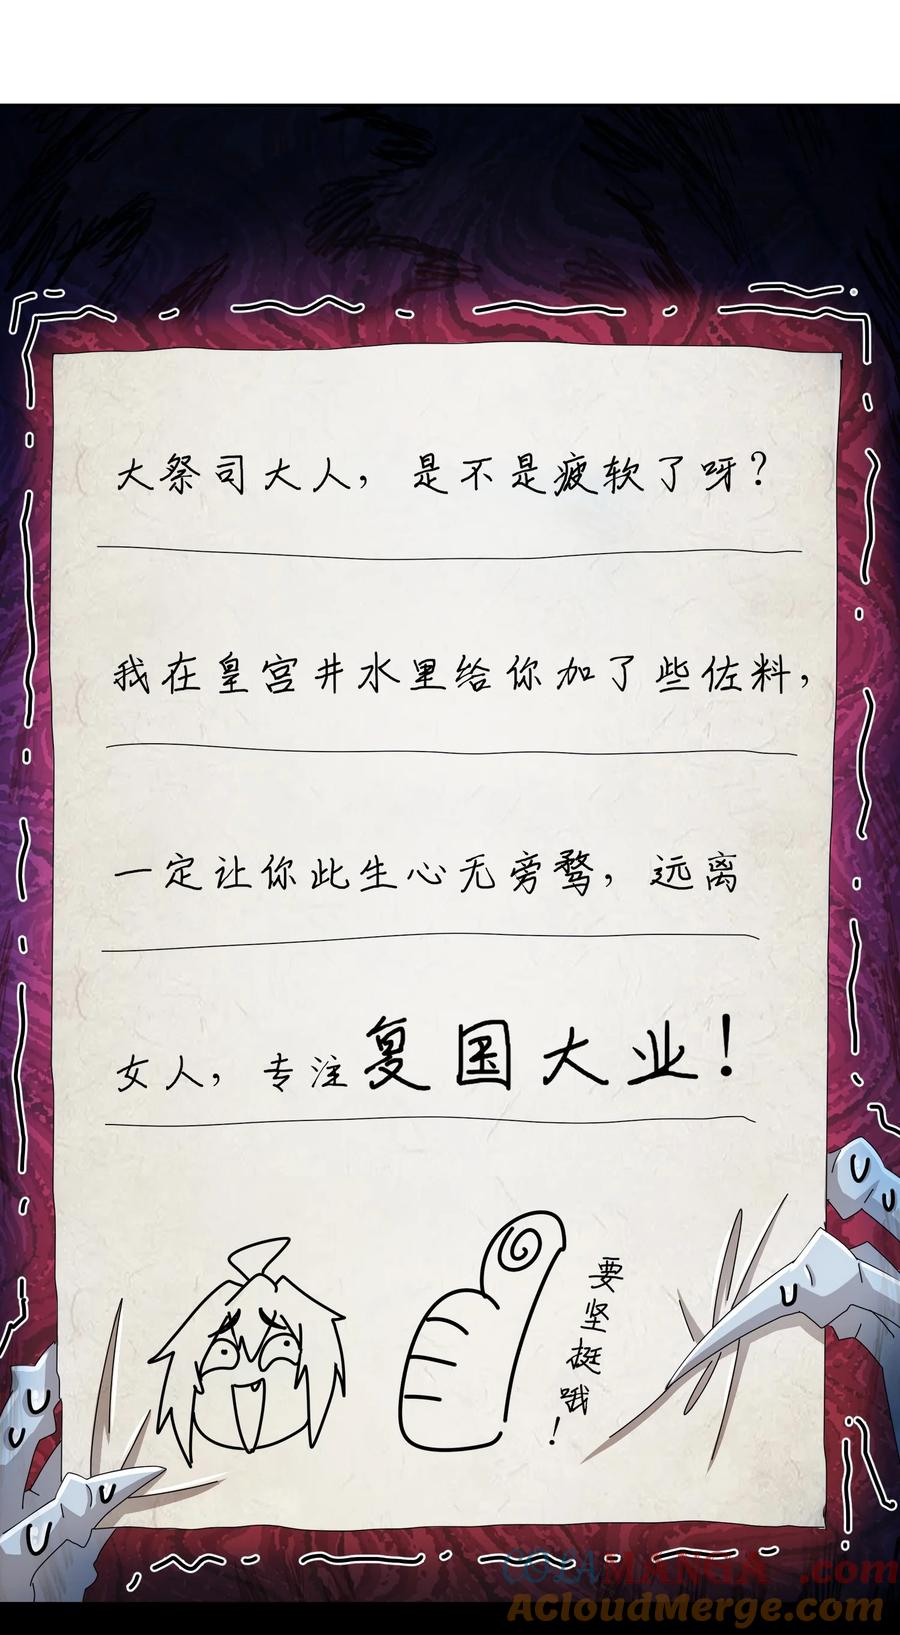 大祭司大人，是不是疲软了呀？
我在皇宫井水里给你加了些佐料，
一定让你此生心无旁鹜，远离
女人，专注复国大业！
要坚挺哦！
COLAMANGA.com
ACloudMerge.com